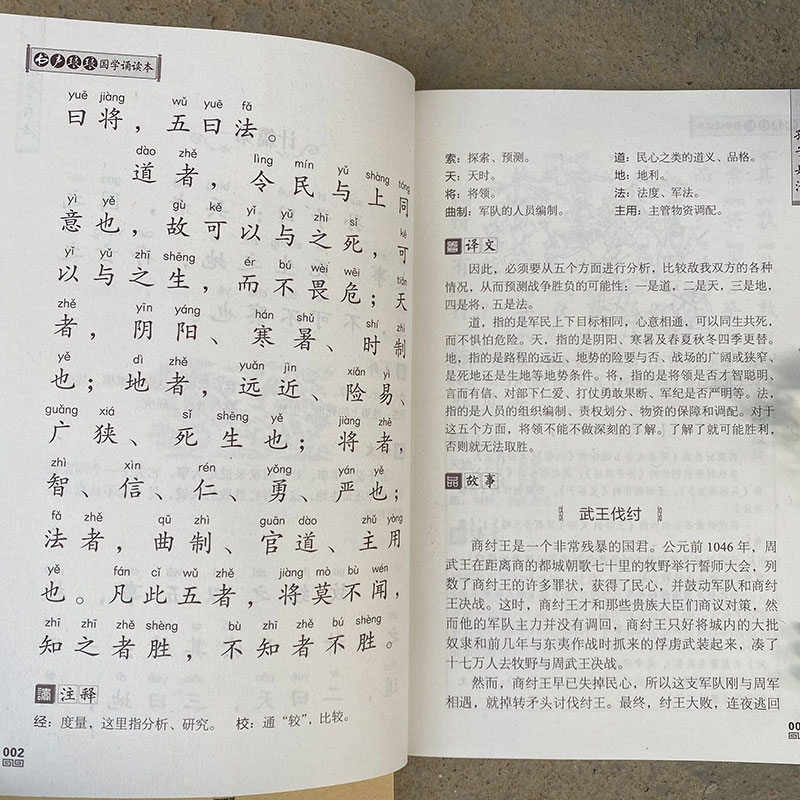 书声琅琅国学诵读本
yuē jiàng wǔ yuē fǎ
曰将，五曰法。
dào zhě lìng mín yǔ shàng tóng
道者，令民与上同
yì yě gù kě yǐ yǔ zhī sǐ kě
意也，故可以与之死，可
yǐ yǔ zhī shēng ér bú wèi wēi tiān
以与之生，而不畏危；天
zhě yīn yáng hán shǔ shí zhì
者，阴阳、寒暑、时制
yě dì zhě yuǎn jìn xiǎn yì
也；地者，远近、险易、
guǎng xiá sǐ shēng yě jiàng zhě
广狭、死生也；将者，
zhì xìn rén yǒng yán yě
智、信、仁、勇、严也；
fǎ zhě qū zhì guān dào zhǔ yòng
法者，曲制、官道、主用
yě fán cǐ wǔ zhě jiàng mò bù wén
也。凡此五者，将莫不闻，
zhī zhī zhě shèng bù zhī zhě bú shèng
知之者胜，不知者不胜。
读 注释
经：度量，这里指分析、研究。 校：通“较”，比较。
002
索：探索、预测。 道：民心之类的道义、品格。
天：天时。 地：地利。
将：将领。 法：法度、军法。
曲制：军队的人员编制。 主用：主管物资调配。
译文
因此，必须要从五个方面进行分析，比较敌我双方的各种
情况，从而预测战争胜负的可能性：一是道，二是天，三是地，
四是将，五是法。
道，指的是军民上下目标相同，心意相通，可以同生共死，
而不惧怕危险。天，指的是阴阳、寒暑及春夏秋冬四季更替。
地，指的是路程的远近、地势的险要与否、战场的广阔或狭窄、
是死地还是生地等地势条件。将，指的是将领是否才智聪明、
言而有信、对部下仁爱、打仗勇敢果断、军纪是否严明等。法，
指的是人员的组织编制、责权划分、物资的保障和调配。对于
这五个方面，将领不能不做深刻的了解。了解了就可能胜利，
否则就无法取胜。
品 故事
武王伐纣
商纣王是一个非常残暴的国君。公元前 1046 年，周
武王在距离商的都城朝歌七十里的牧野举行誓师大会，列
数了纣王的许多罪状，获得了民心，并鼓动军队和商纣
王决战。这时，商纣王才和那些贵族大臣们商议对策，然
而他的军队主力并没有调回，商纣王只好将城内的大批
奴隶和前几年与东夷作战时抓来的俘虏武装起来，凑了
十七万人去牧野与周武王决战。
然而，商纣王早已失掉民心，所以这支军队刚与周军
相遇，就掉转矛头讨伐纣王。最终，纣王大败，连夜逃回